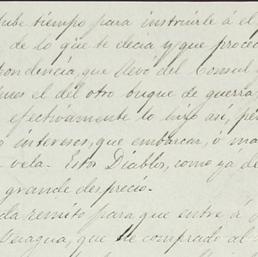 tube tiempo para instruirle á el p
de lo que te decia y que proced
pondencia, que llevo del Consul
mes el del otro buque de guerra,
efectivamente lo hizo así, pe
ó intereses, que embarcar, ó ma
vela. Estos Diablos, como ya de
grande desprecio.
da remito para que entre á
que he comprado al